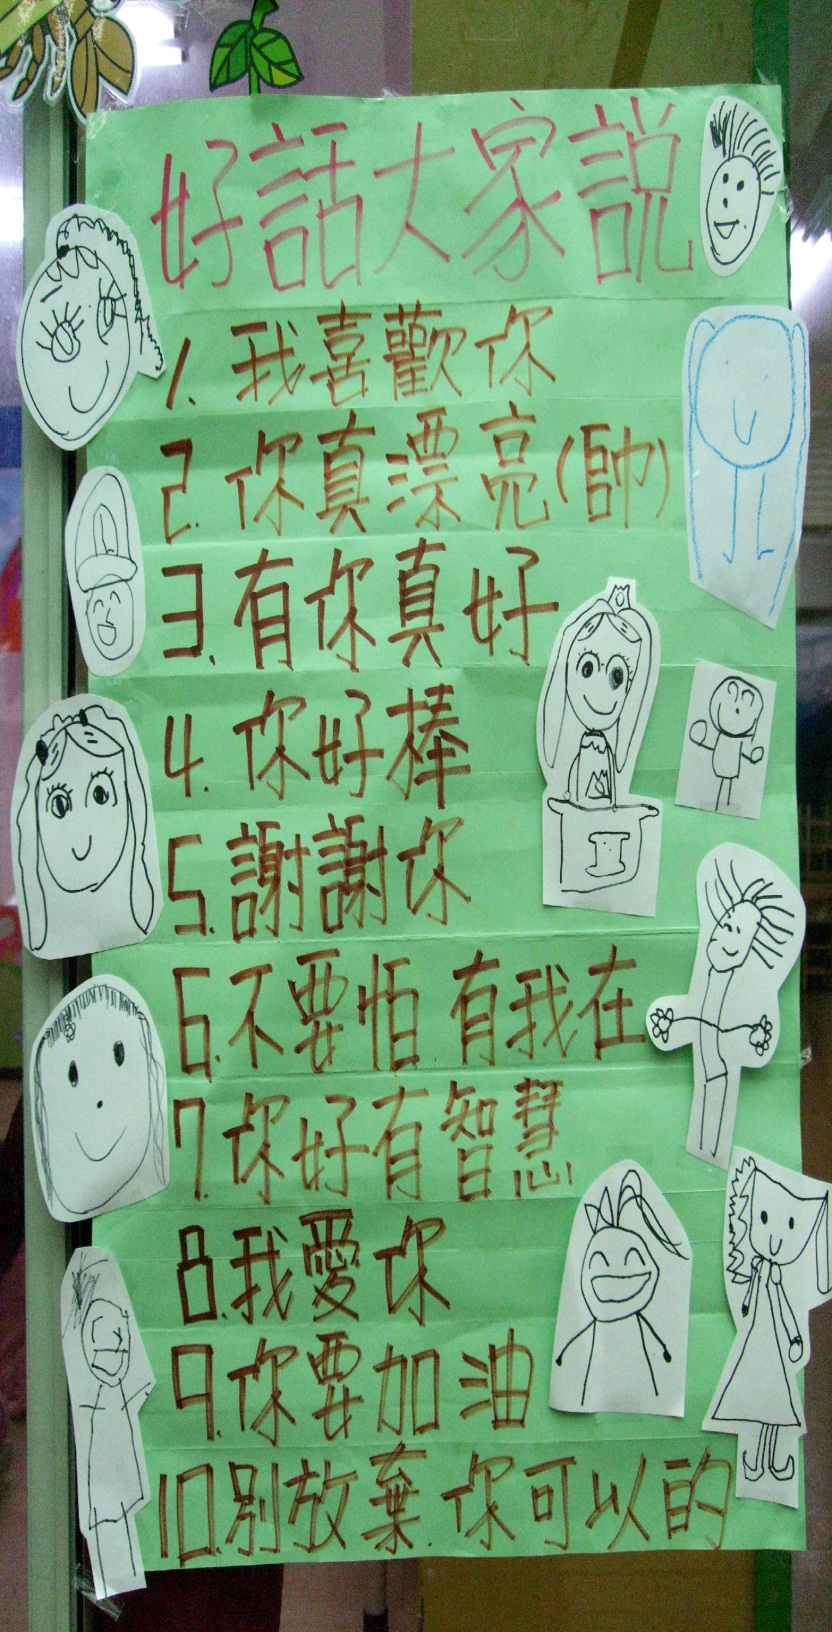 好話大家説
1. 我喜歡你
2. 你真漂亮(帥)
3. 有你真好
4. 你好棒
5. 謝謝你
6. 不要怕 有我在
7. 你好有智慧
8. 我愛你
9. 你要加油
10. 別放棄.你可以的